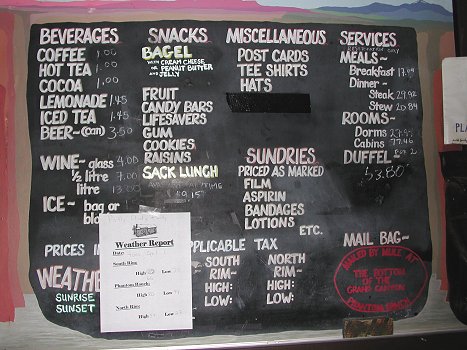 BEVERAGES
COFFEE 1.00
HOT TEA 1.00
COCOA 1.00
LEMONADE 1.45
ICED TEA 1.45
BEER~(can) 3.50
WINE~ glass 4.00
½ litre 7.00
litre 13.00
ICE~ bag or
SNACKS
BAGEL
WITH CREAM CHEESE
OR PEANUT BUTTER
AND JELLY
FRUIT
CANDY BARS
LIFESAVERS
GUM
COOKIES
RAISINS
SACK LUNCH
MISCELLANEOUS
POST CARDS
TEE SHIRTS
HATS
SUNDRIES
PRICED AS MARKED
FILM
ASPIRIN
BANDAGES
LOTIONS
ETC.
SERVICES
MEALS~
Breakfast
Dinner~
Steak 29.92
Stew 20.84
ROOMS~
Dorms
Cabins
DUFFEL~
53.80
PRICES APPLICABLE TAX
WEATHER
SUNRISE
SUNSET
Weather Report
Date:
South Rim:
High Low
Phantom Ranch:
High Low
North Rim:
High Low
SOUTH
RIM~
HIGH:
LOW:
NORTH
RIM~
HIGH:
LOW:
MAIL BAG~
MAILED BY MULE AT
THE BOTTOM
OF THE
GRAND CANYON
PHANTOM RANCH